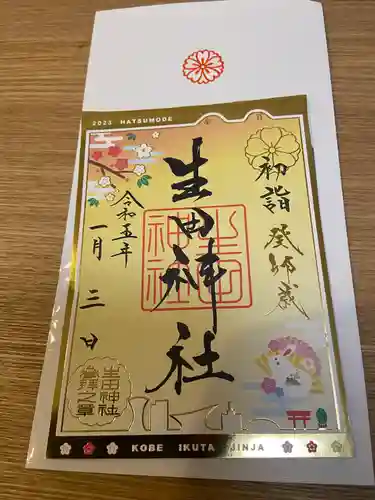 2023 HATSUMODE
初詣 癸卯歳
生田神社
生田神社
令和五年
一月三日
生田神社
参拝之章
KOBE IKUTA JINJA